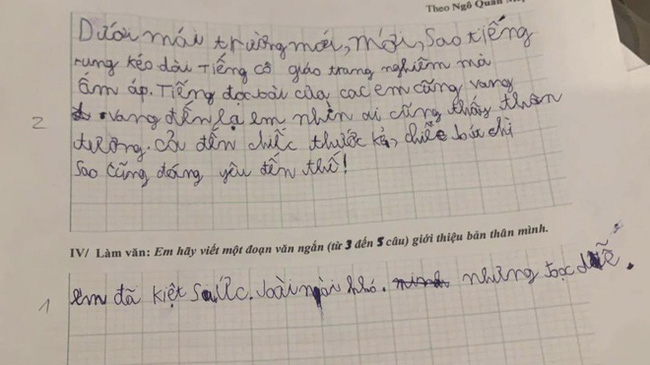 Theo Ngô Quân
Dưới mái trường mới, mới, sao tiếng
rung kéo dài Tiếng cô giáo trang nghiêm mà
ấm áp. Tiếng đọc bài của các em cũng vang
vang đến lạ em nhìn ai cũng thấy thân
2
tương. cả đến chiếc thước kẻ, chiếc bút chì
sao cũng đáng yêu đến thế!
IV/ Làm văn: Em hãy viết một đoạn văn ngắn (từ 3 đến 5 câu) giới thiệu bản thân mình.
1
em đã kiệt sức. bài khó. những đọc dễ.